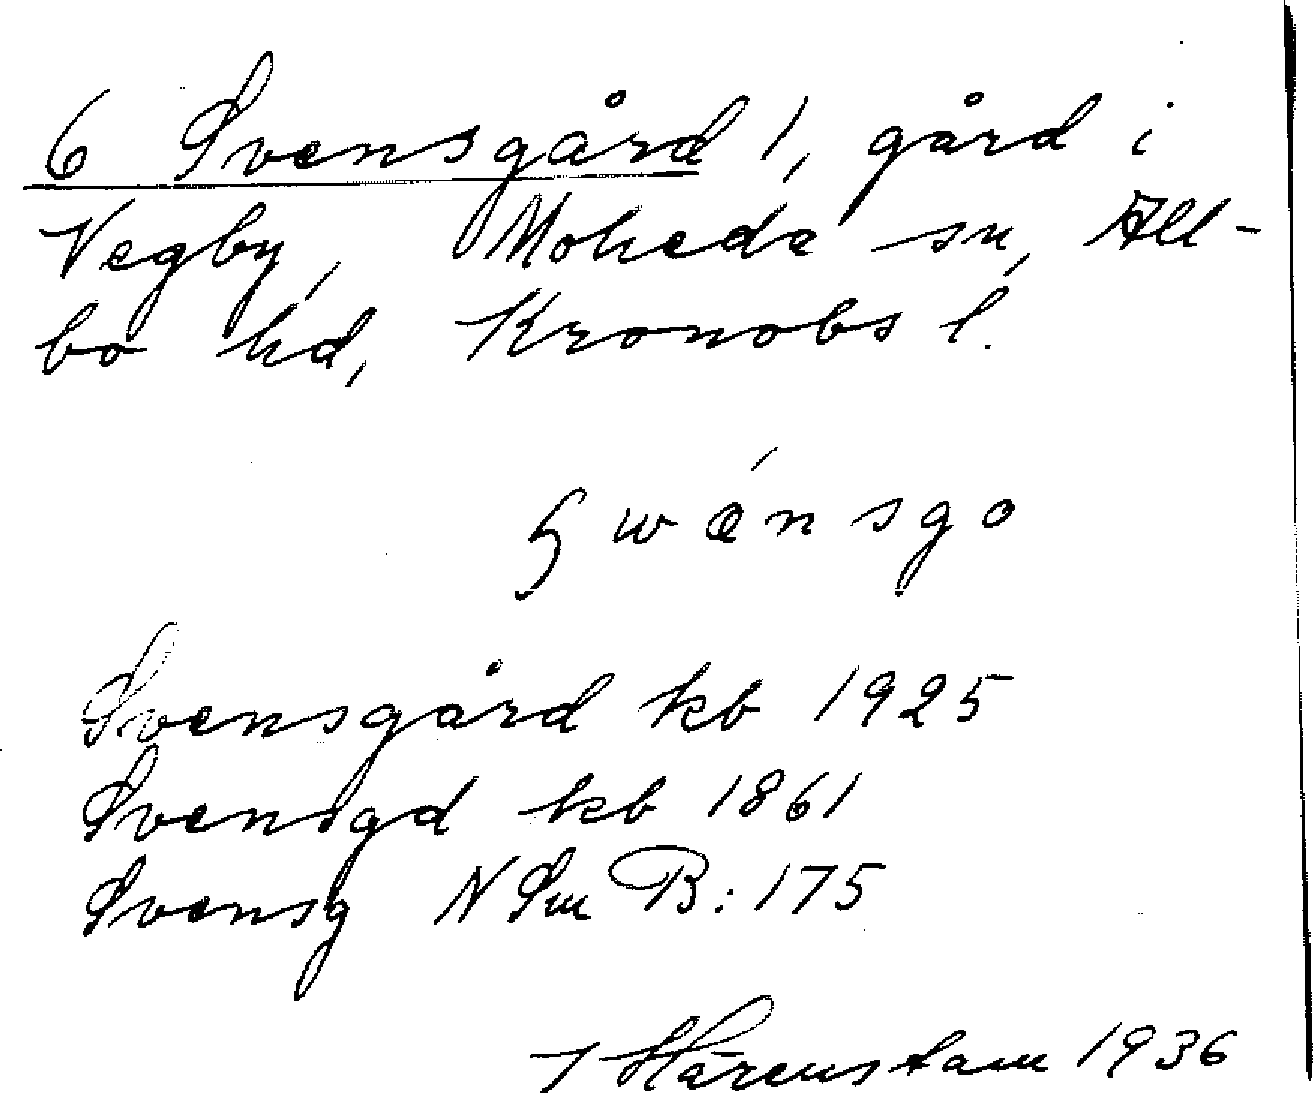 6 Svensgård 1, gård i
Vegby, Moheda sn, All-
bo hd, Kronobs l.
swænsgo
Svensgård kb 1925
Svensgd kb 1861
Svensg N Sm B: 175
Härenstam 1936